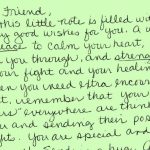 Friend,
this little note is filled wit
y good wishes for you. A w
peace to calm your heart,
you through, and streng
our fight and your healin
en you need extra encour
t, remember that your
rs" everywhere are think
you and sending their pos
ghts. You are special and